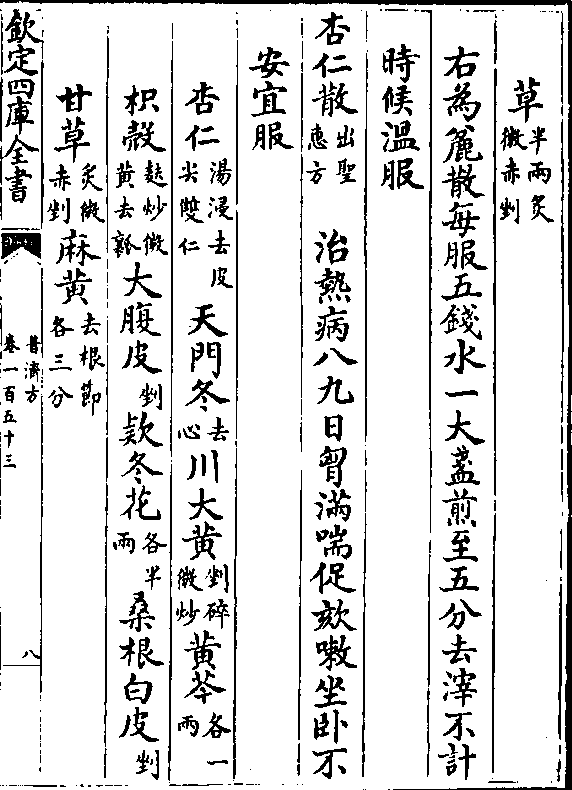 草半兩炙微赤剉
右為麄散每服五錢水一大盞煎至五分去滓不計
時候溫服
杏仁散出聖惠方 治熱病八九日胷滿喘促欬嗽坐卧不
安宜服
杏仁湯浸去皮尖雙仁 天門冬去心 川大黄剉碎微炒 黄芩各一兩
枳殻麩炒微黄去瓤 大腹皮剉 欵冬花各半兩 桑根白皮剉
甘草炙微赤剉 麻黄去根節各三分
欽定四庫全書
普濟方
卷一百五十三
八